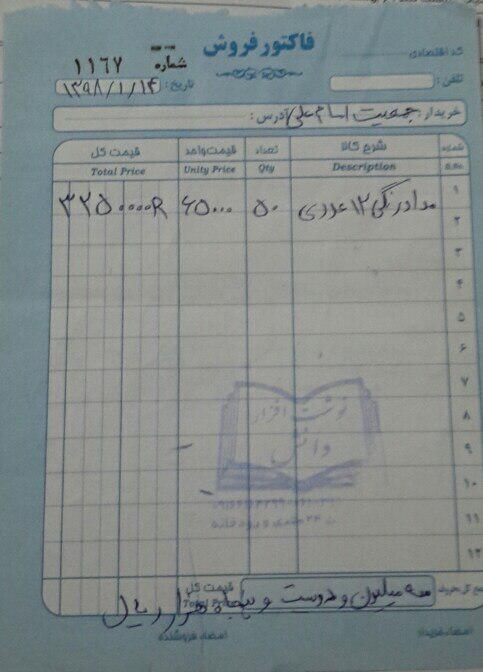 فاکتور فروش
شماره ۱۱۶۷
کد اقتصادی
تلفن :
تاریخ : ۱۳۹۸/۱/۱۴
خریدار : جمعیت امام علی آدرس :
شماره شرح کالا تعداد قیمت واحد قیمت کل
Description Qty Unity Price Total Price
۱ مدادرنگی ۱۲ عددی ۵۰ ۶۵۰۰۰ ۳۲۵۰۰۰۰R
۲
۳
۴
۵
۶
۷
۸
۹
۱۰
۱۱
۱۲
نوشت افزار
دانش
قیمت کل
Total Price
سه میلیون و دویست و پنجاه هزار ریال
امضاء خریدار امضاء فروشنده